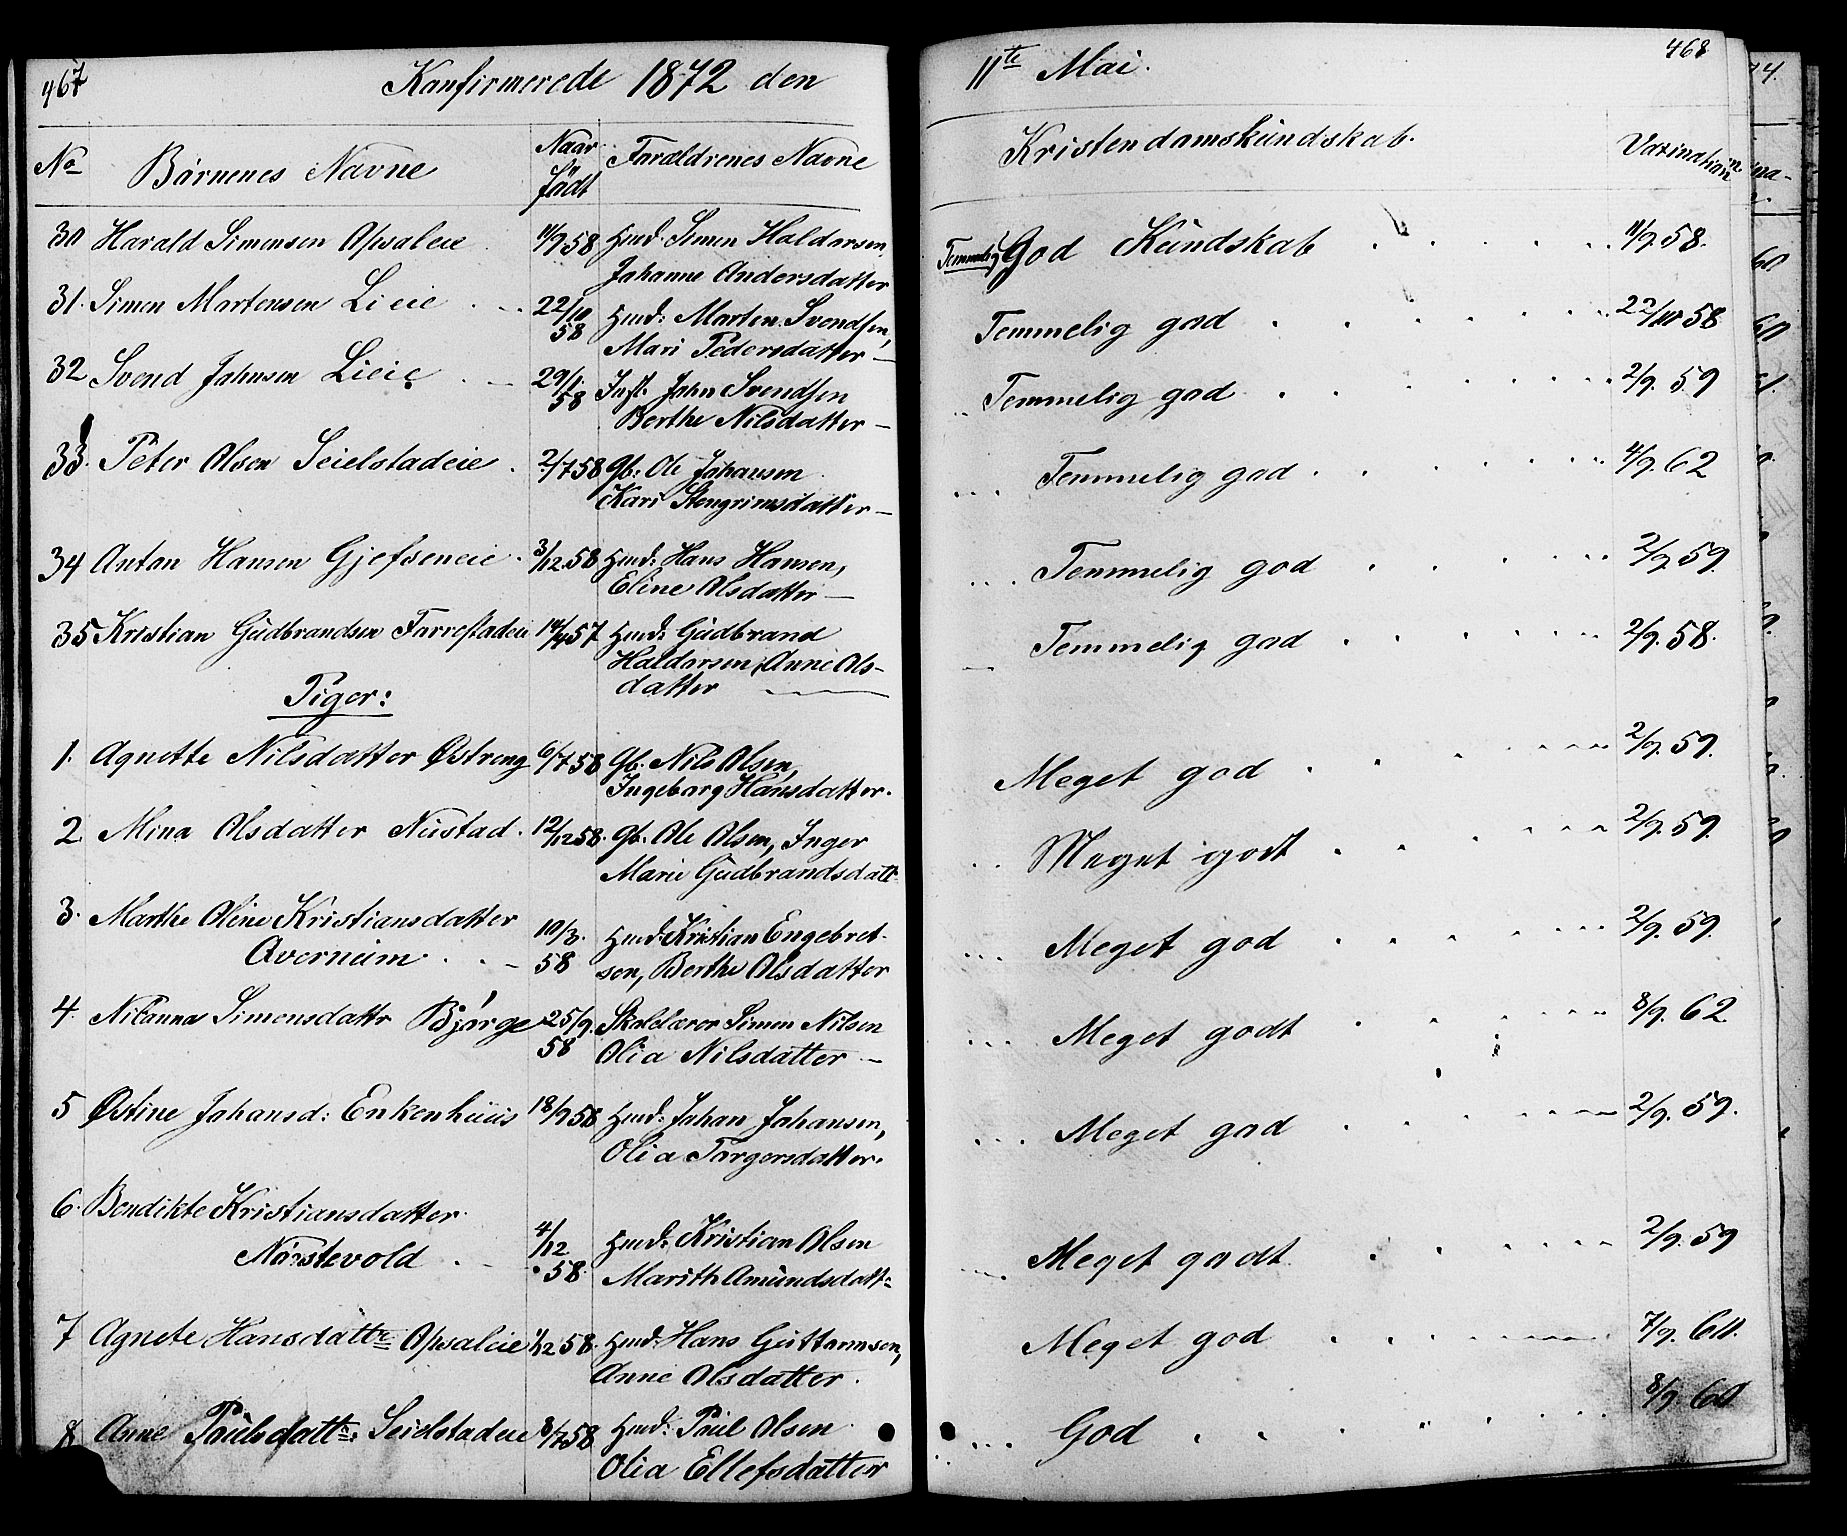 467
Konfirmerede 1872 den
No Börnenes Navne Naar födt Forældrenes Navne
30 Harald Simensen Opsaleie 11/9 58 Hmd. Simen Haldorsen,
Johanne Andersdatter
31. Simen Martensen Lieie 22/10 58 Hmd: Marten Svendsen,
Mari Pedersdatter —
32 Svend Johnsen Lieie 29/1 58 Inst. John Svendsen
Berthe Nilsdatter —
33. Peter Olsen Seielstadeie 2/7 58 Gb. Ole Johansen
Kari Stengrimsdatter —
34 Anton Hansen Gjefseneie 3/12 58 Hmd: Hans Hansen,
Eline Olsdatter —
35 Kristian Gudbrandsen Farrestadeie 14/4 57 Hmd: Gudbrand
Haldorsen, Anne Ols-
datter —
Piger:
1. Agnette Nilsdatter Østreng 6/7 58 Gb. Nils Olsen,
Ingeborg Hansdatter.
2. Mina Olsdatter Nustad. 12/12 58. Gb. Ole Olsen, Inger
Marie Gudbrandsdatt
3. Marthe Oline Kristiansdatter
Overnum 10/3. 58 Hmd: Kristian Engebret-
sen, Berthe Olsdatter
4. Nilanna Simensdattr Bjørge 25/9. 58 Skolelærer Simen Nilsen
Olia Nilsdatter —
5 Østine Johansd: Enkenhuus 18/9 58 Hmd: Johan Johansen,
Olia Torgersdatter.
6. Bendikte Kristiansdatter
Nørstevold 4/12 58. Hmd: Kristian Olsen
Marith Amundsdatt:
7 Agnete Hansdattr Opsaleie 1/12 58. Hmd: Hans Guttormsen,
Anne Olsdatter.
8 Anne Paulsdattr. Seielstadeie 8/7 58 Hmd: Paul Olsen
Olia Ellefsdatter
468
11te Mai.
Kristendomskundskab. Vaxination
Temmelig God Kundskab 11/9. 58.
Temmelig god 22/10 58
Temmelig god 2/9. 59
Temmelig god 4/9. 62
Temmelig god 2/9 59.
Temmelig god 2/9. 58.
Meget god 2/9. 59.
Meget godt 2/9. 59.
Meget god 2/9. 59.
Meget godt 8/9. 62
Meget god 2/9. 59.
Meget godt 2/9. 59
Meget god 7/9. 60.
God 8/9. 60